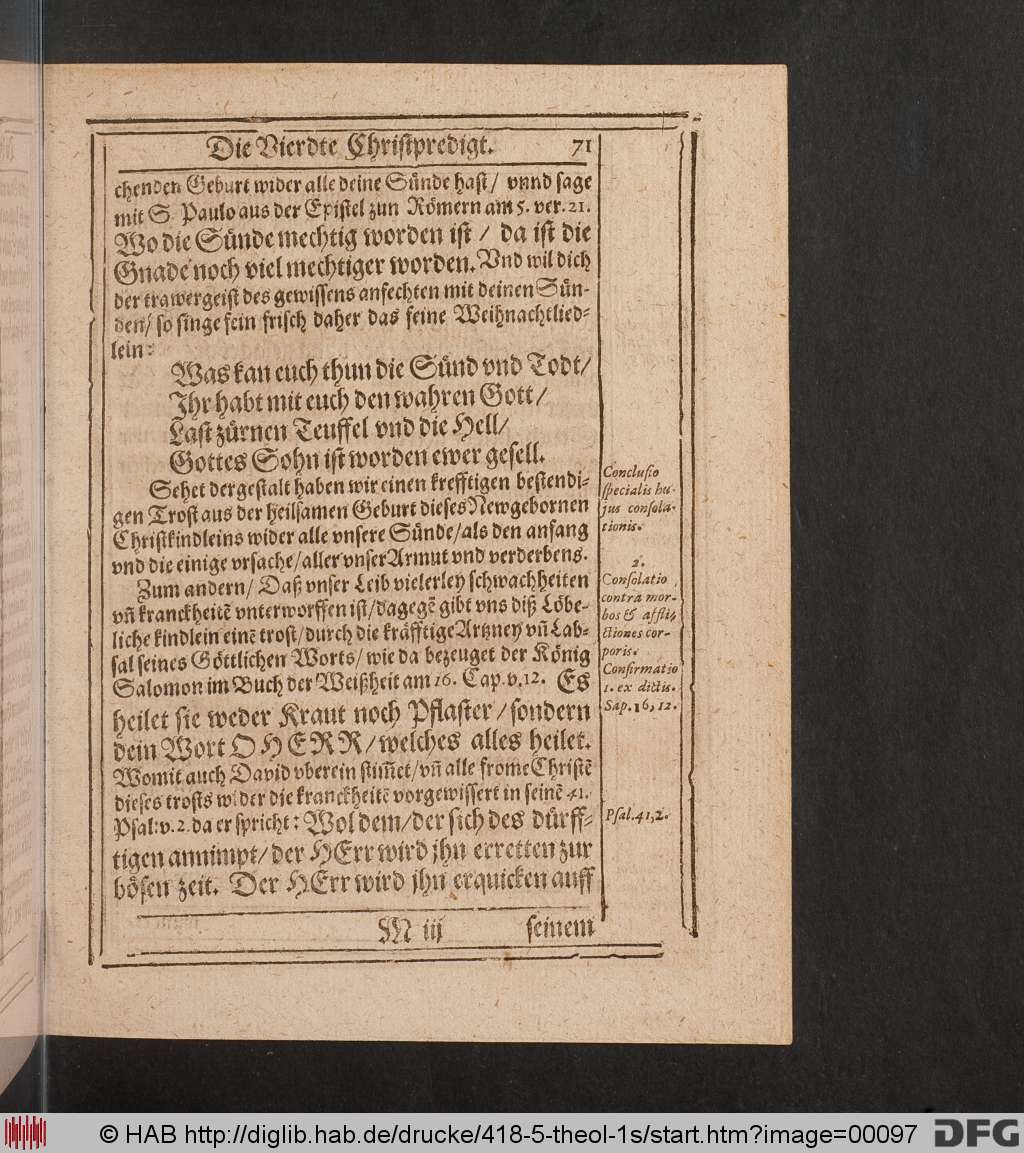 Die Vierdte Christpredigt. 71
chenden Geburt wider alle deine Sünde hast / vnnd sage
mit S. Paulo aus der Epistel zun Römern am 5. ver. 21.
Wo die Sünde mechtig worden ist / da ist die
Gnade noch viel mechtiger worden. Vnd wil dich
der trawergeist des gewissens anfechten mit deinen Sün-
den / so singe fein frisch daher das feine Weihnachtlied-
lein:
Was kan euch thun die Sünd vnd Todt /
Ihr habt mit euch den wahren Gott /
Last zürnen Teuffel vnd die Hell /
Gottes Sohn ist worden ewer gesell.
Sehet dergestalt haben wir einen krefftigen bestendi-
gen Trost aus der heilsamen Geburt dieses Newgebornen
Christkindleins wider alle vnsere Sünde / als den anfang
vnd die einige vrsache / aller vnser Armut vnd verderbens.
Zum andern / Daß vnser Leib vielerley schwachheiten
vñ kranckheitẽ vnterworffen ist / dagegẽ gibt vns diß Löbe-
liche kindlein einẽ trost / durch die kräfftige Artzney vñ Lab-
sal seines Göttlichen Worts / wie da bezeuget der König
Salomon im Buch der Weißheit am 16. Cap. v. 12. Es
heilet sie weder Kraut noch Pflaster / sondern
dein Wort O HERR / welches alles heilet.
Womit auch David vberein stim̃et / vñ alle frome Christẽ
dieses trosts wider die kranckheitẽ vorgewissert in seinẽ 41.
Psal: v. 2. da er spricht: Wol dem / der sich des dürff-
tigen annimpt / der HErr wird jhn erretten zur
bösen zeit. Der HErr wird jhn erquicken auff
M iij seinem
Conclusio
specialis hu-
jus consola-
tionis.
2.
Consolatio
contra mor-
bos & affli-
ctiones cor-
poris.
Confirmatio
1. ex dictis.
Sap. 16, 12.
Psal. 41, 2.
© HAB http://diglib.hab.de/drucke/418-5-theol-1s/start.htm?image=00097 DFG